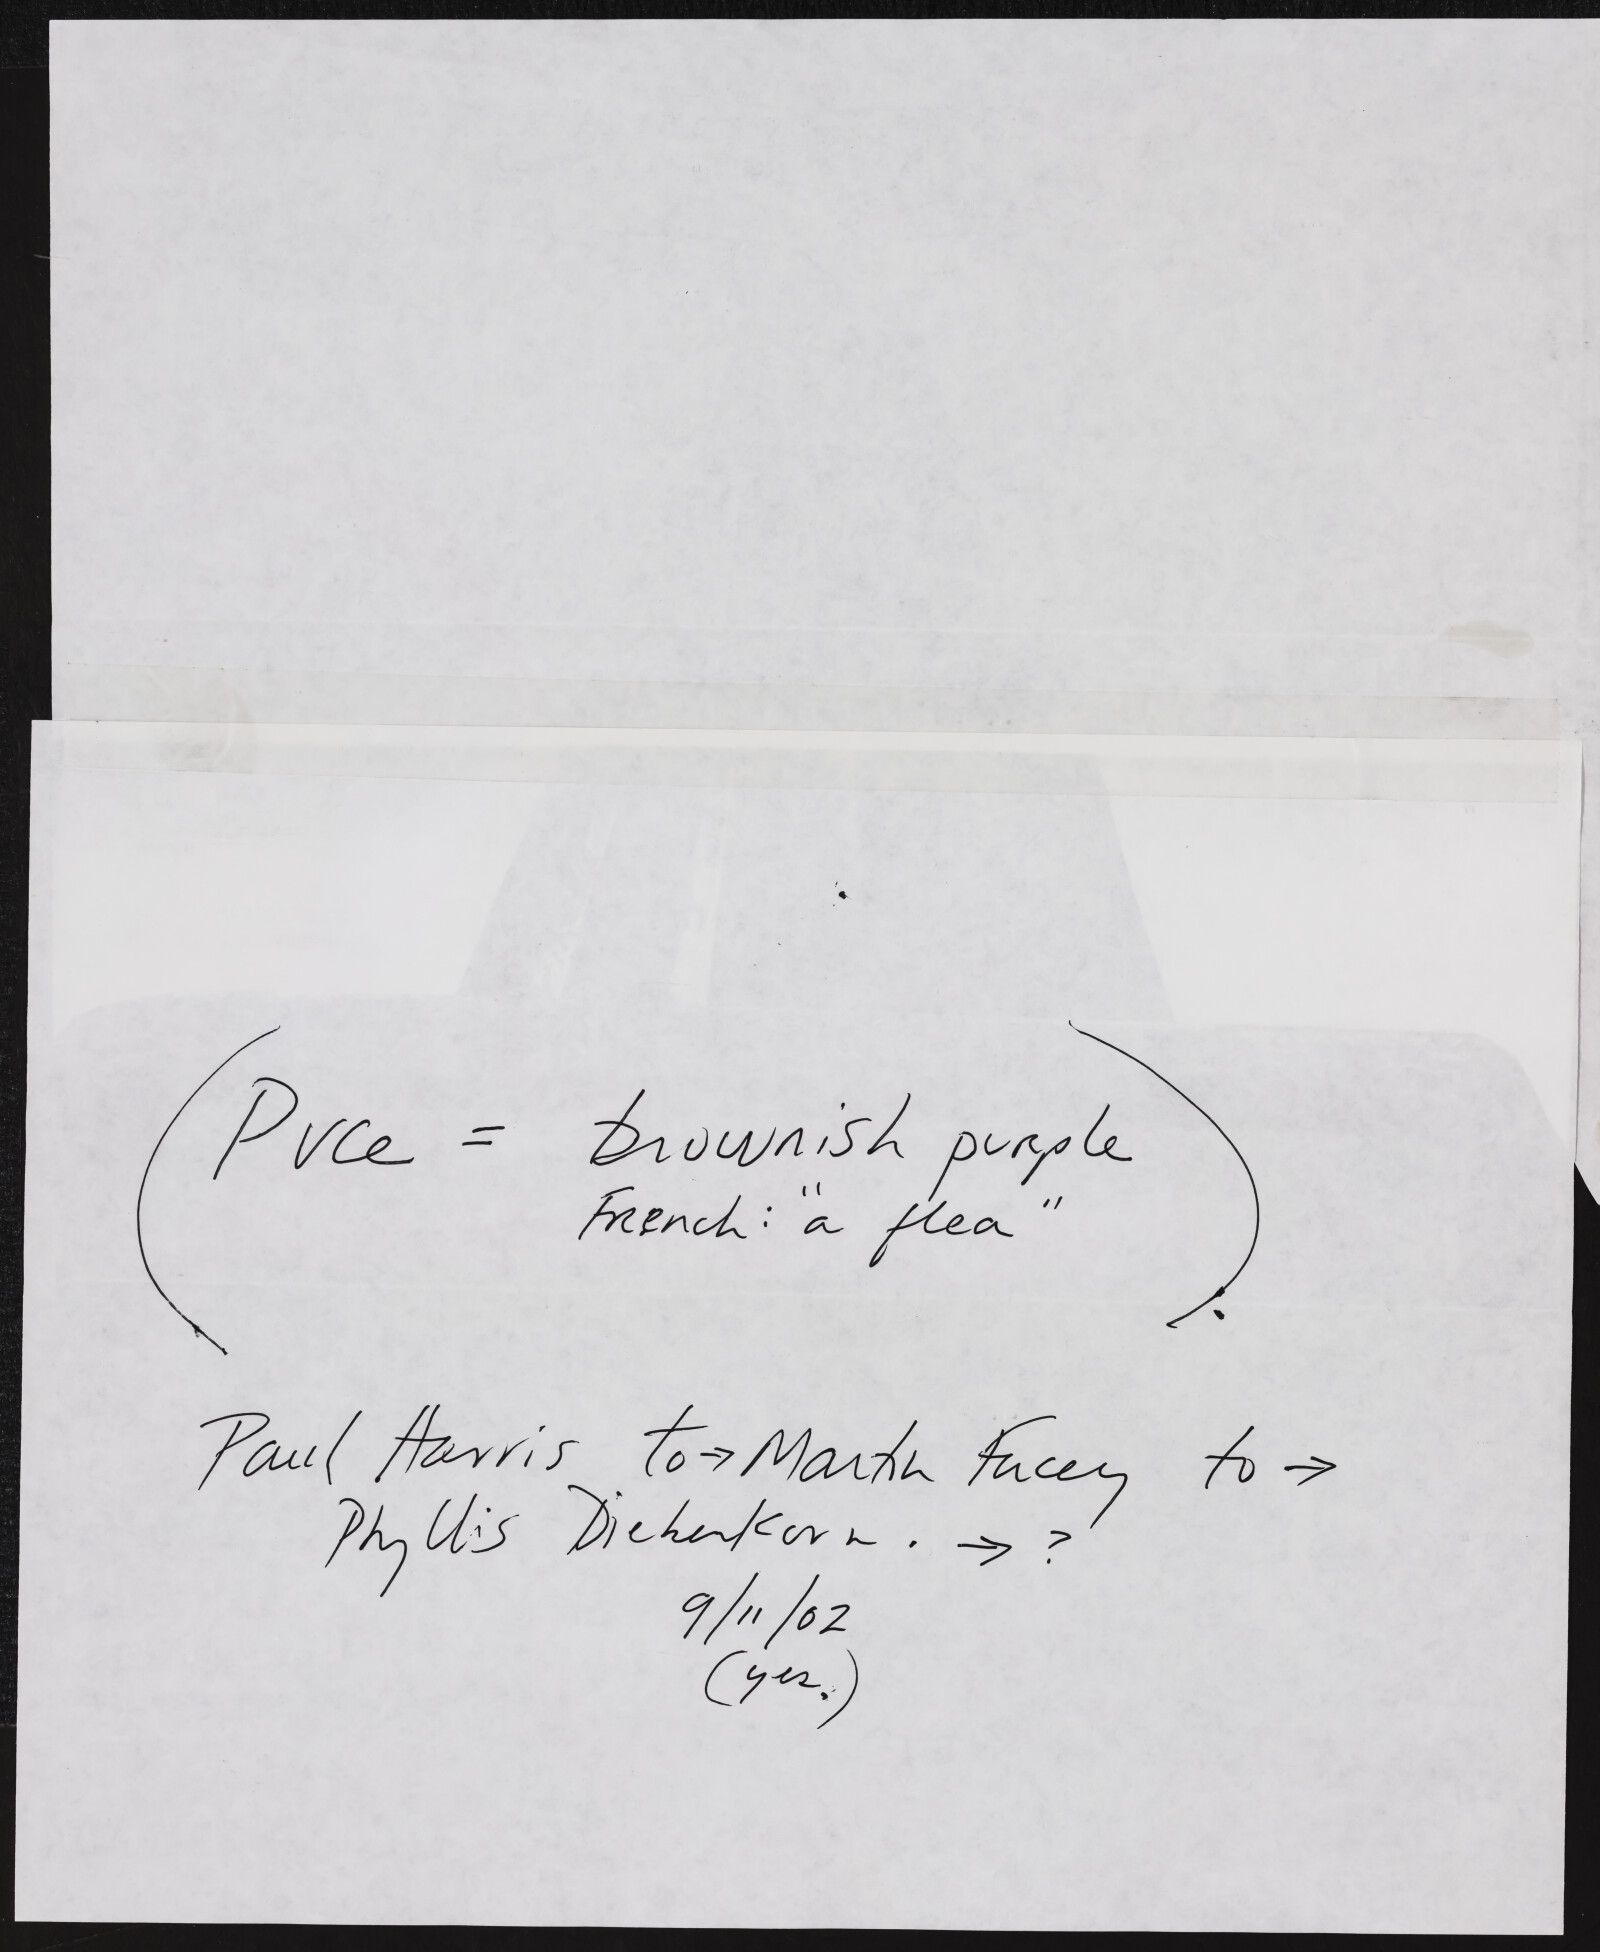 (Puce = brownish purple
French: "a flea").
Paul Harris to → Martin Facey to →
Phyllis Diebenkorn. → ?
9/11/02
(yes.)